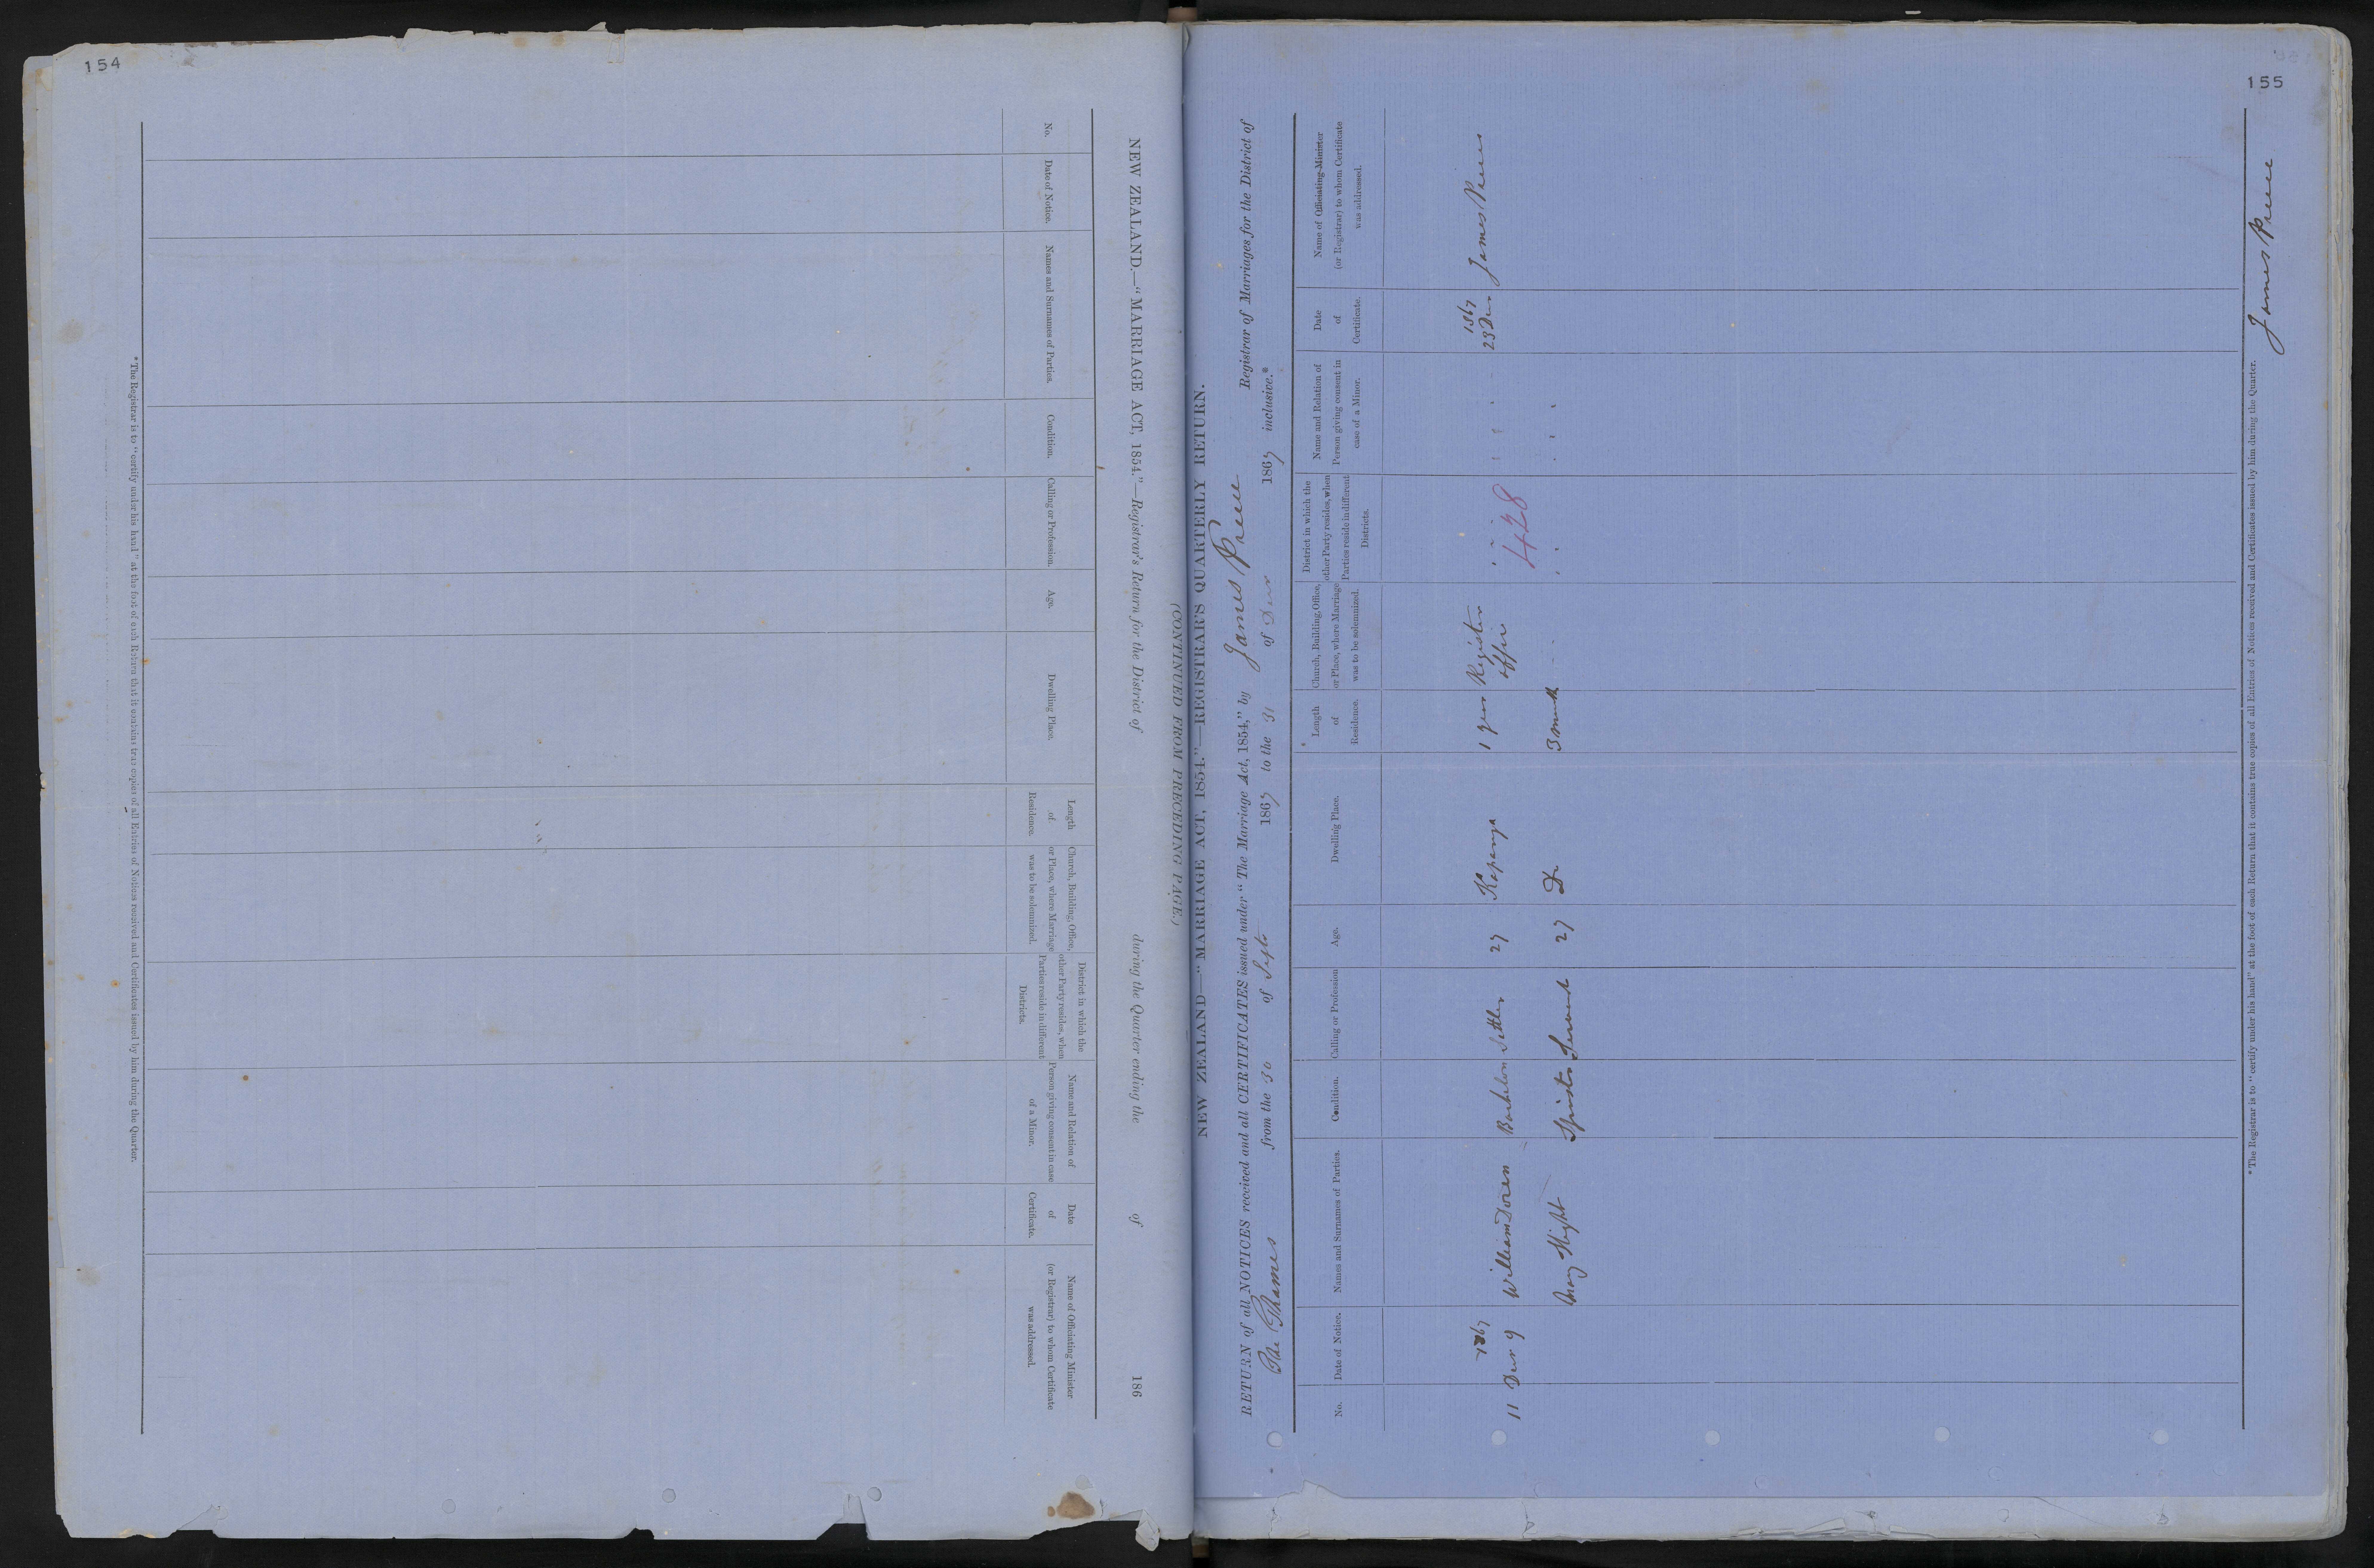 154
(CONTINUED FROM PRECEDING PAGE.)
NEW ZEALAND.—"MARRIAGE ACT, 1854."—Registrar's Return for the District of during the Quarter ending the of 186
No.
Date of Notice.
Names and Surnames of Parties.
Condition.
Calling or Profession.
Age.
Dwelling Place.
Length
of
Residence.
Church, Building, Office,
or Place, where Marriage
was to be solemnized.
District in which the
other Party resides, when
Parties reside in different
Districts.
Name and Relation of
Person giving consent in case
of a Minor.
Date
of
Certificate.
Name of Officiating Minister
(or Registrar) to whom Certificate
was addressed.
*The Registrar is to "certify under his hand" at the foot of each Return that it contains true copies of all Entries of Notices received and Certificates issued by him during the Quarter.
155
NEW ZEALAND—"MARRIAGE ACT, 1854."—REGISTRAR'S QUARTERLY RETURN.
RETURN of all NOTICES received and all CERTIFICATES issued under "The Marriage Act, 1854," by James Preece Registrar of Marriages for the District of
The Thames from the 30 of Septr 1867 to the 31 of Decr 1867 inclusive.*
No.
Date of Notice.
Names and Surnames of Parties.
Condition.
Calling or Profession
Age.
Dwelling Place.
Length
of
Residence.
Church, Building, Office,
or Place, where Marriage
was to be solemnized.
District in which the
other Party resides, when
Parties reside in different
Districts.
Name and Relation of
Person giving consent in
case of a Minor.
Date
of
Certificate.
Name of Officiating Minister
(or Registrar) to whom Certificate
was addressed.
1867 1867
11 Decr 9 William Bachelor Settler 27 Kapanga 1 year Register office 23 Decr James Preece
428
Mary Spinster Servant 27 Do 3 month
*The Registrar is to "certify under his hand" at the foot of each Return that it contains true copies of all Entries of Notices received and Certificates issued by him during the Quarter.
James Preece